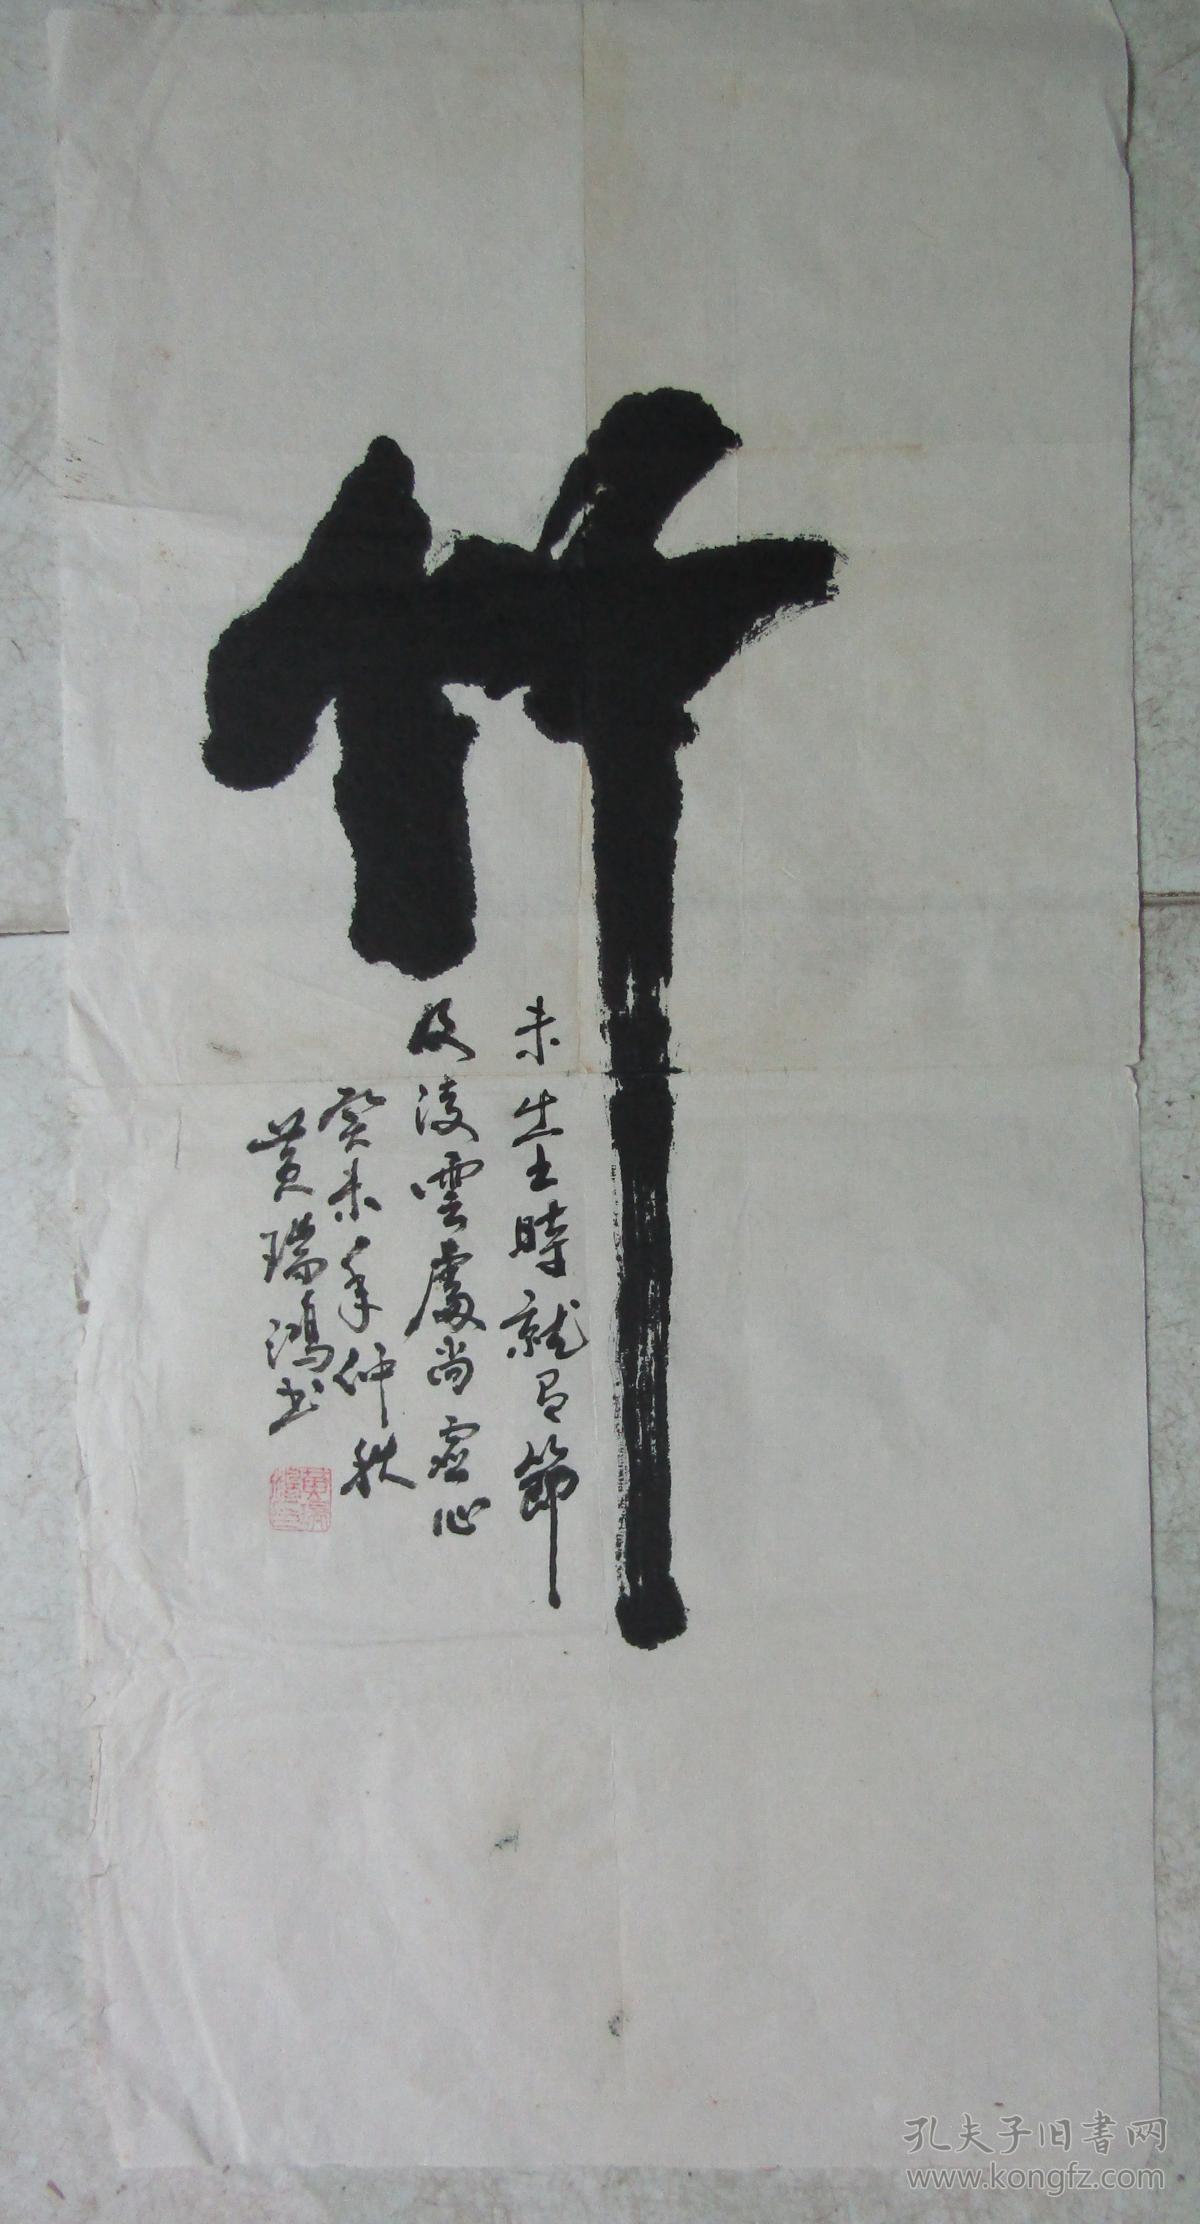 竹
未出土時就有節
及凌雲處尚虛心
癸未年仲秋
黄瑞鴻书
孔夫子旧書网
www.kongfz.com